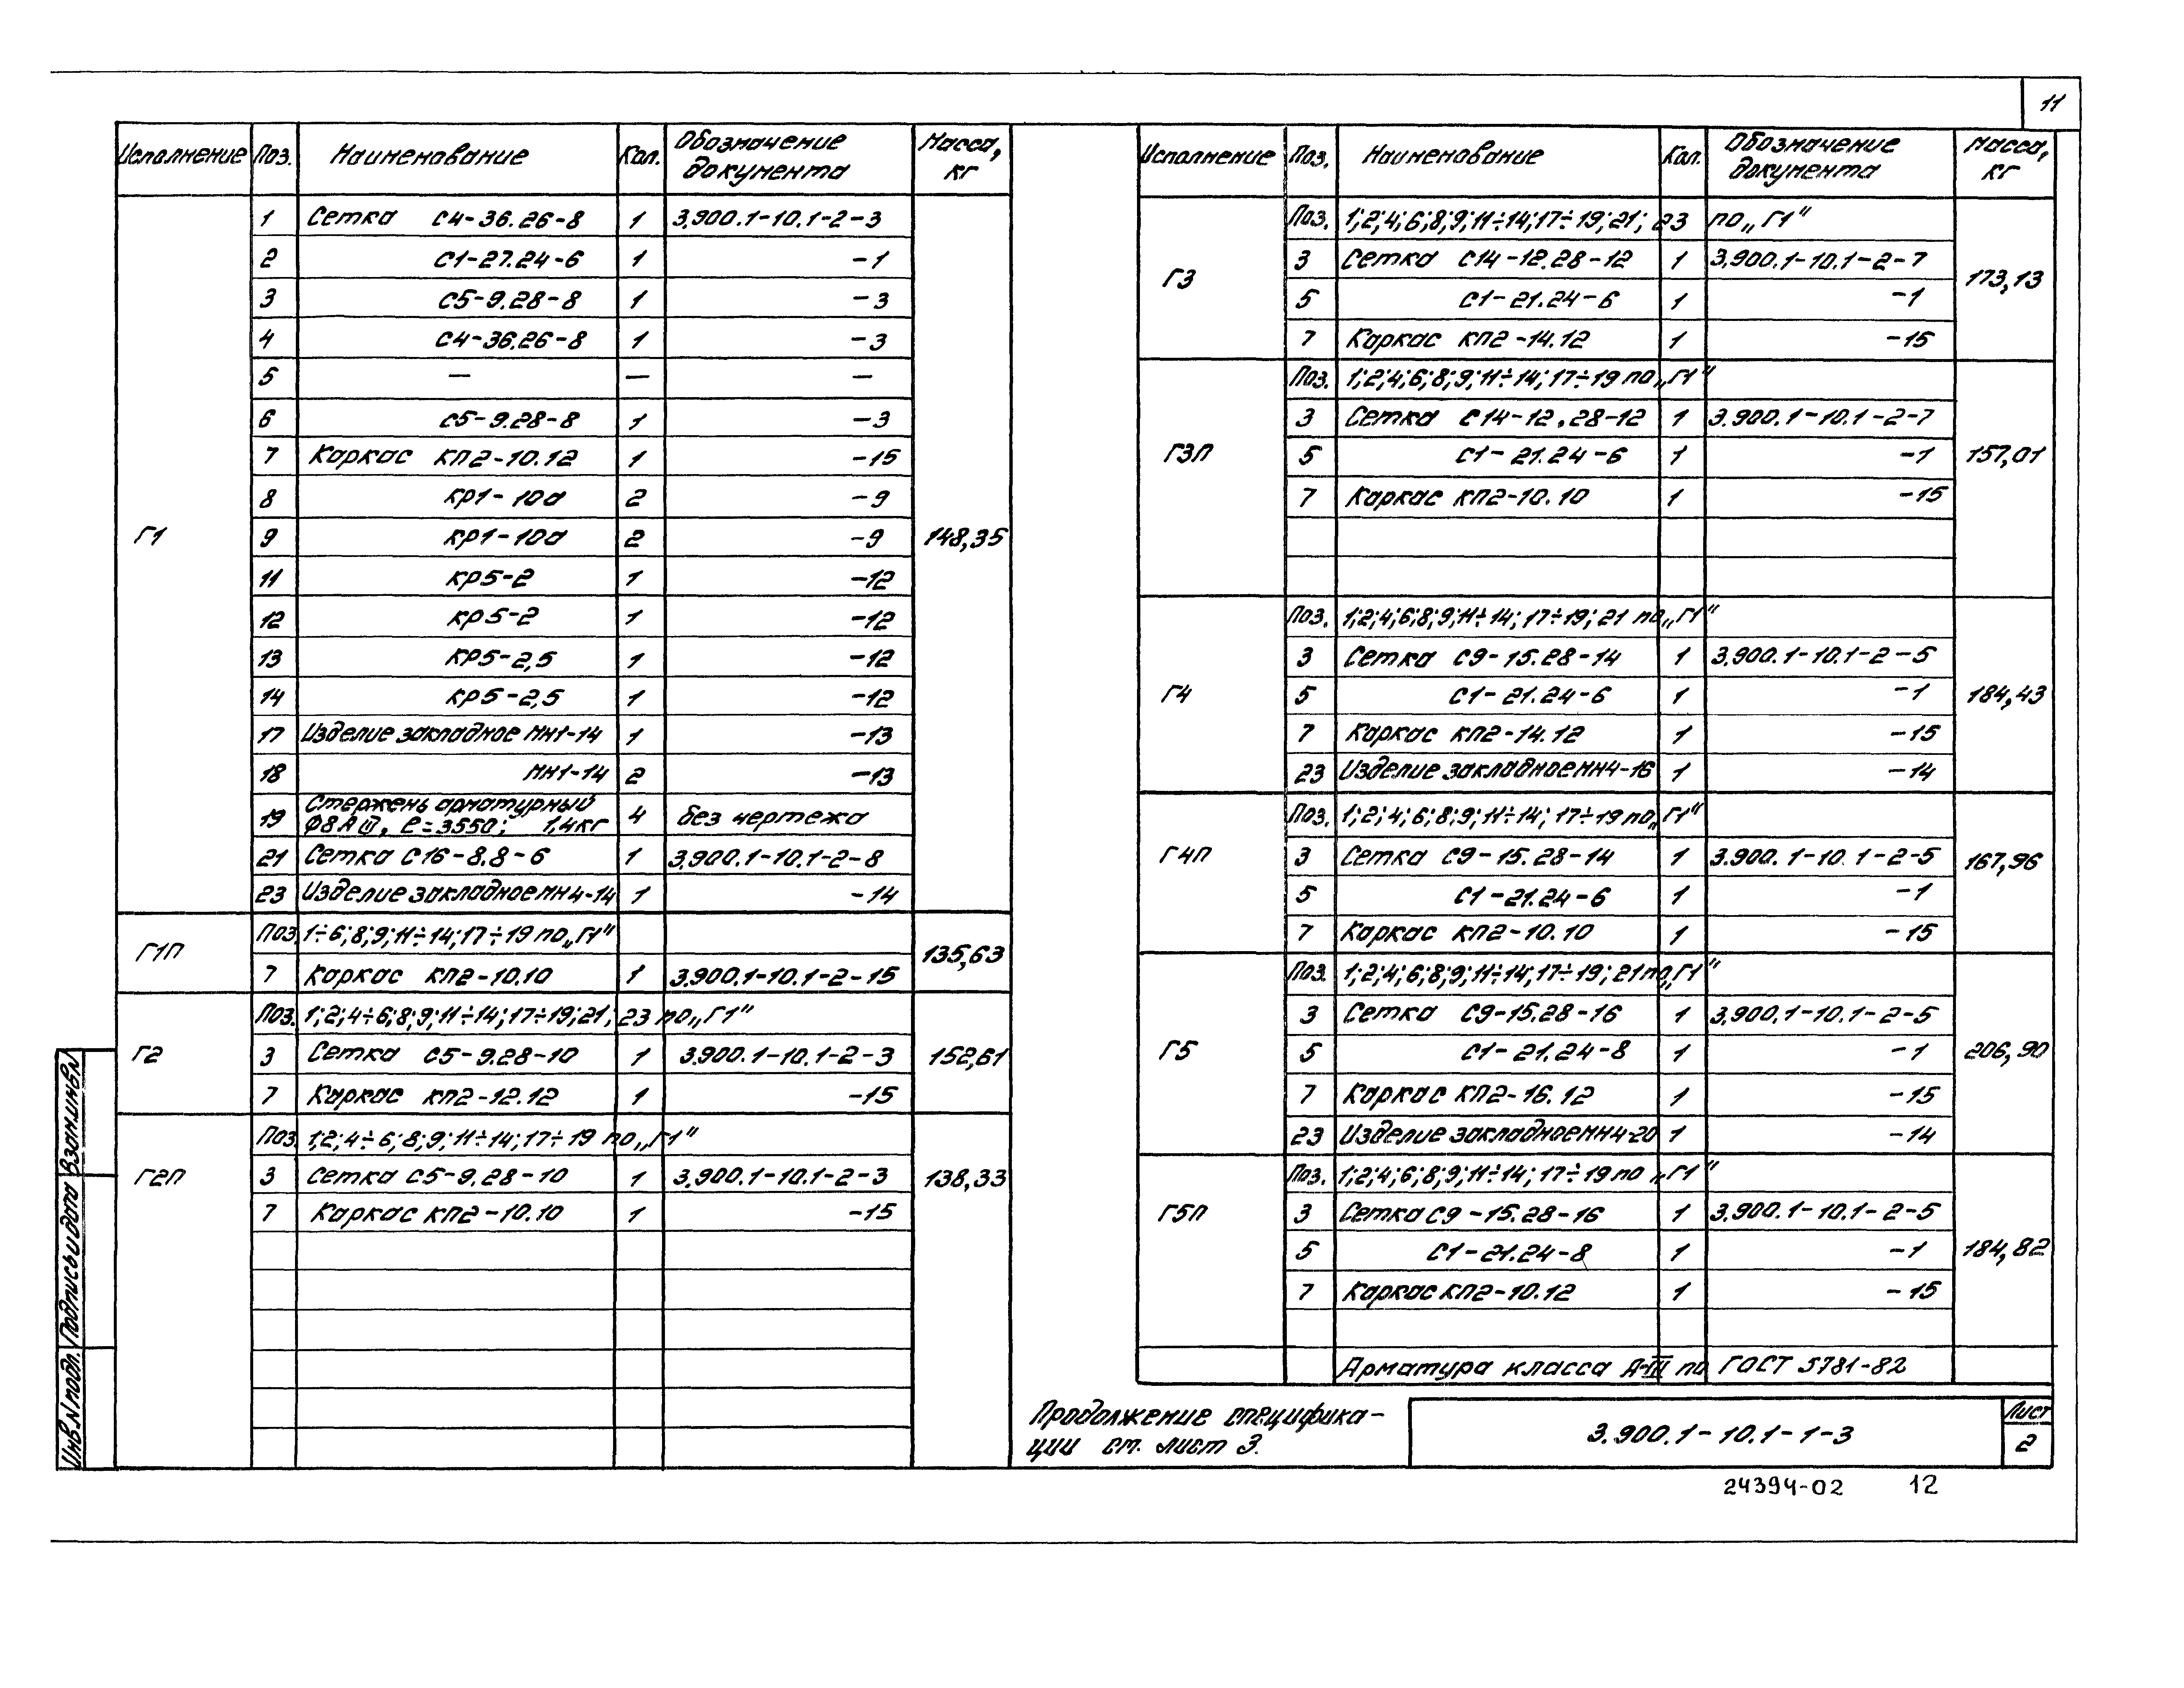 11
Исполнение Поз. Наименование Кол. Обозначение документа Масса, кг
Г1 148,35
1 Сетка С4-36.26-8 1 3.900.1-10.1-2-3
2 С1-27.24-6 1 -1
3 С5-9.28-8 1 -3
4 С4-36.26-8 1 -3
5 — — —
6 С5-9.28-8 1 -3
7 Каркас КП2-10.12 1 -15
8 КР1-10а 2 -9
9 КР1-10а 2 -9
11 КР5-2 1 -12
12 КР5-2 1 -12
13 КР5-2,5 1 -12
14 КР5-2,5 1 -12
17 Изделие закладное МН1-14 1 -13
18 МН1-14 2 -13
19 Стержень арматурный
Ф8АIII, ℓ=3550; 1,4кг 4 без чертежа
21 Сетка С16-8.8-6 1 3.900.1-10.1-2-8
23 Изделие закладное МН4-14 1 -14
Г1П 135,63
Поз. 1÷6;8;9;11÷14;17÷19 по „Г1"
7 Каркас КП2-10.10 1 3.900.1-10.1-2-15
Г2 152,61
Поз. 1;2;4÷6;8;9;11÷14;17÷19;21; 23 по „Г1"
3 Сетка С5-9.28-10 1 3.900.1-10.1-2-3
7 Каркас КП2-12.12 1 -15
Г2П 138,33
Поз. 1;2;4÷6;8;9;11÷14;17÷19 по „Г1"
3 Сетка С5-9.28-10 1 3.900.1-10.1-2-3
7 Каркас КП2-10.10 1 -15
Исполнение Поз. Наименование Кол. Обозначение документа Масса, кг
Г3 173,13
Поз. 1;2;4;6;8;9;11÷14;17÷19;21; 23 по „Г1"
3 Сетка С14-12.28-12 1 3.900.1-10.1-2-7
5 С1-21.24-6 1 -1
7 Каркас КП2-14.12 1 -15
Г3П 157,01
Поз. 1;2;4;6;8;9;11÷14;17÷19 по „Г1"
3 Сетка С14-12.28-12 1 3.900.1-10.1-2-7
5 С1-21.24-6 1 -1
7 Каркас КП2-10.10 1 -15
Г4 184,43
Поз. 1;2;4;6;8;9;11÷14;17÷19;21 по „Г1"
3 Сетка С9-15.28-14 1 3.900.1-10.1-2-5
5 С1-21.24-6 1 -1
7 Каркас КП2-14.12 1 -15
23 Изделие закладное МН4-16 1 -14
Г4П 167,96
Поз. 1;2;4;6;8;9;11÷14;17÷19 по „Г1"
3 Сетка С9-15.28-14 1 3.900.1-10.1-2-5
5 С1-21.24-6 1 -1
7 Каркас КП2-10.10 1 -15
Г5 206,90
Поз. 1;2;4;6;8;9;11÷14;17÷19;21 по „Г1"
3 Сетка С9-15.28-16 1 3.900.1-10.1-2-5
5 С1-21.24-8 1 -1
7 Каркас КП2-16.12 1 -15
23 Изделие закладное МН4-20 1 -14
Г5П 184,82
Поз. 1;2;4;6;8;9;11÷14;17÷19 по „Г1"
3 Сетка С9-15.28-16 1 3.900.1-10.1-2-5
5 С1-21.24-8 1 -1
7 Каркас КП2-10.12 1 -15
Арматура класса А-III по ГОСТ 5781-82
Продолжение специфика-
ции см. лист 3.
3.900.1-10.1-1-3
Лист
2
24394-02 12
Инв.N подл. Подпись и дата Взам.инв.N